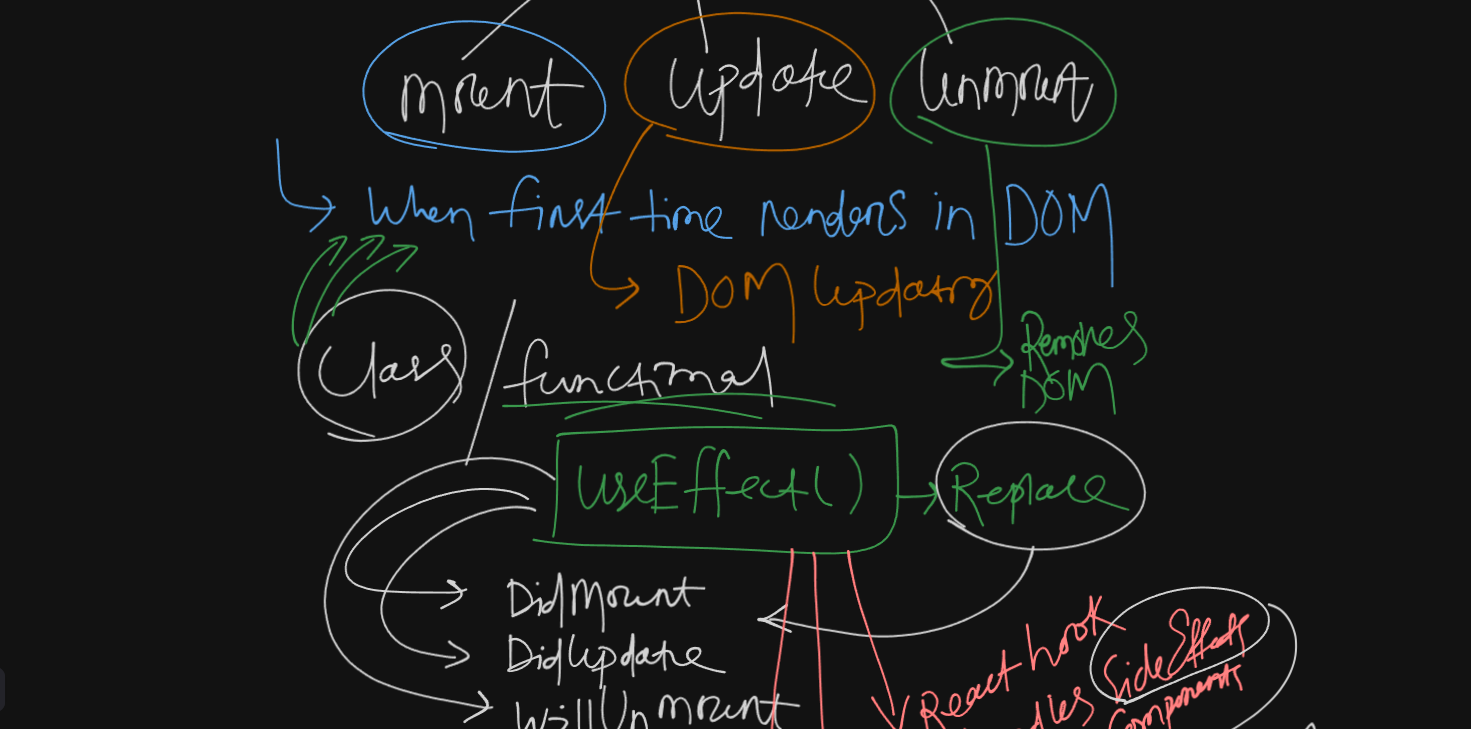 Mount Update Unmount
When first time renders in DOM
DOM Updating
Removes
DOM
Class / functional
useEffect() Replace
DidMount
DidUpdate
WillUnmount
React hook
Side Effects
Components